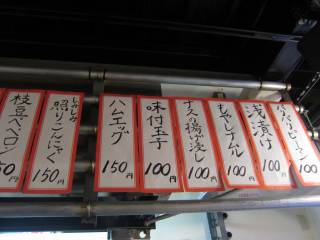 枝豆ペペロン
50円
じゃみじゃみ
照りこんにゃく
150円
ハムエッグ
150円
味付玉子
100円
ナスの揚げ浸し
100円
もやしナムル
100円
浅漬け
100円
100